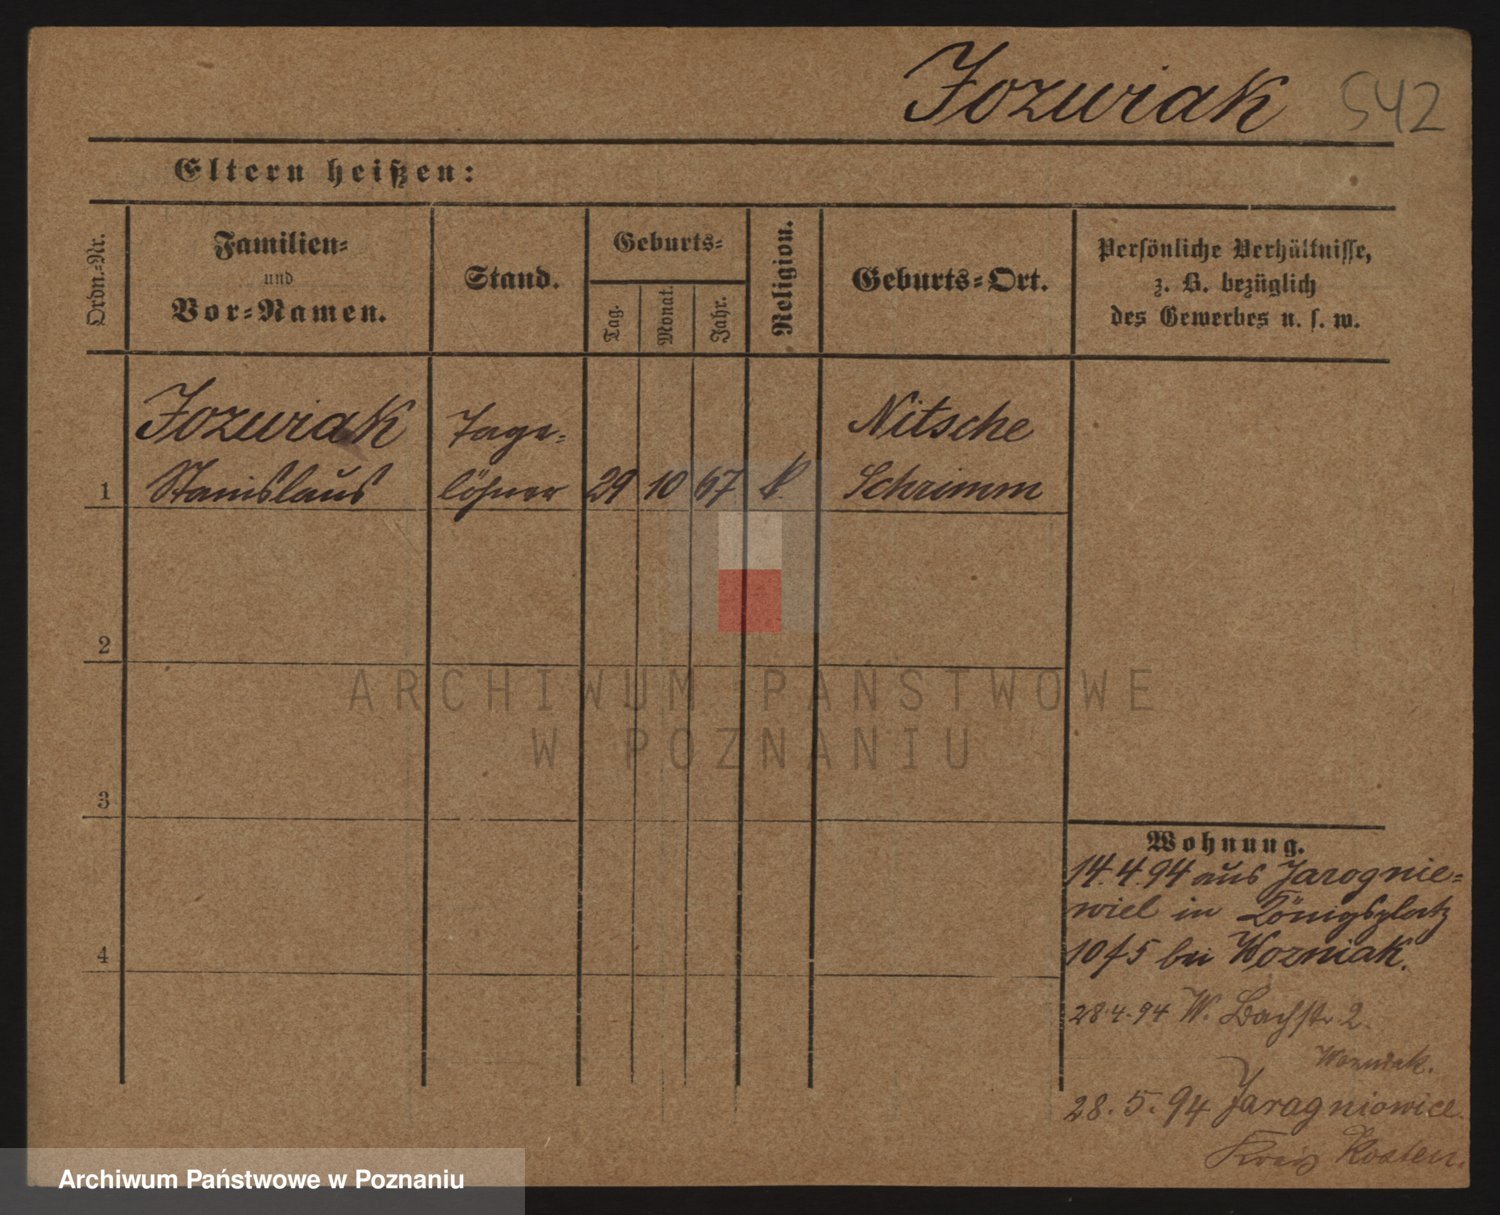 Jozwiak 542
Eltern heißen:
Ordn.-Nr.
Familien-
und
Vor-Namen.
Stand.
Geburts-
Tag.
Monat.
Jahr.
Religion.
Geburts-Ort.
Persönliche Verhältnisse,
z. B. bezüglich
des Gewerbes u. s. w.
Jozwiak
Stanislaus
Tage-
löhner
29 10 67 k.
Nitsche
Schrimm
1
2
3
4
Wohnung.
14.4.94 aus Jarognie-
wiel in Königsplatz
10f5 bei Wozniak.
28.4.94 W. Bachstr 2.
Wozniak.
28.5.94 Jaragniowice
Kreis Kosten.
ARCHIWUM PAŃSTWOWE
W POZNANIU
Archiwum Państwowe w Poznaniu